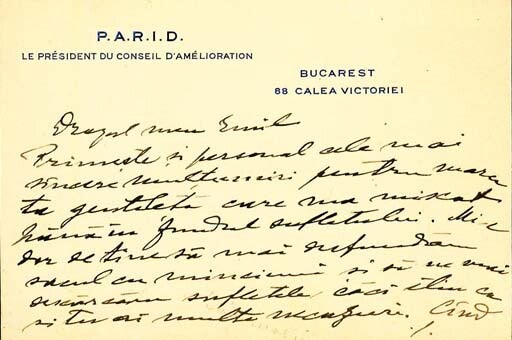 P.A.R.I.D.
LE PRÉSIDENT DU CONSEIL D'AMÉLIORATION
BUCAREST
68 CALEA VICTORIEI
Dragul meu Emil
Primește și personal cele mai
sincere mulțumiri pentru marea
ta gentilețe care m'a mișcat
până în fundul sufletului. Mi-e
dor de tine să mai
sacul cu minciuni și să ne mai
descărcăm sufletele, căci știu că
și tu ai multe necazuri. Când